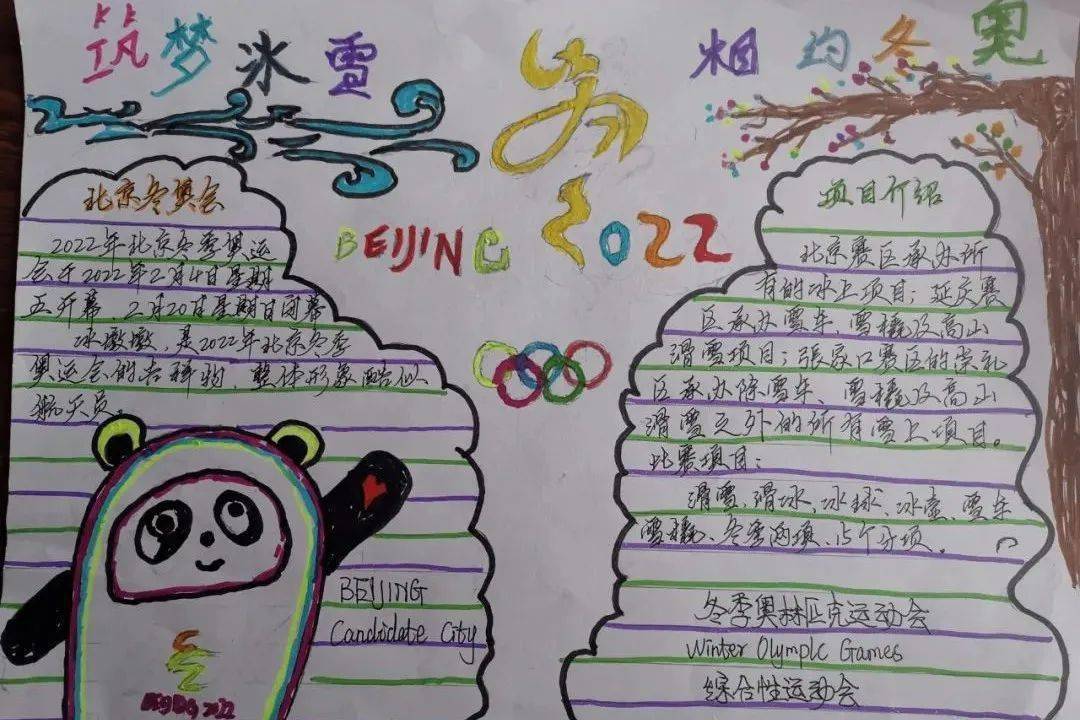 筑梦冰雪
相约冬奥
BEIJING 2022
北京冬奥会
2022年北京冬季奥运
会于2022年2月4日星期
五开幕，2月20日星期日闭幕
冰墩墩，是2022年北京冬季
奥运会的吉祥物，整体形象酷似
航天员。
BEIJING
Candidate City
项目介绍
北京赛区承办所
有的冰上项目；延庆赛
区承办雪车、雪橇及高山
滑雪项目；张家口赛区的崇礼
区承办除雪车、雪橇及高山
滑雪之外的所有雪上项目。
比赛项目：
滑雪、滑冰、冰球、冰壶、雪车
雪橇、冬季两项、15个分项。
冬季奥林匹克运动会
Winter Olympic Games
综合性运动会